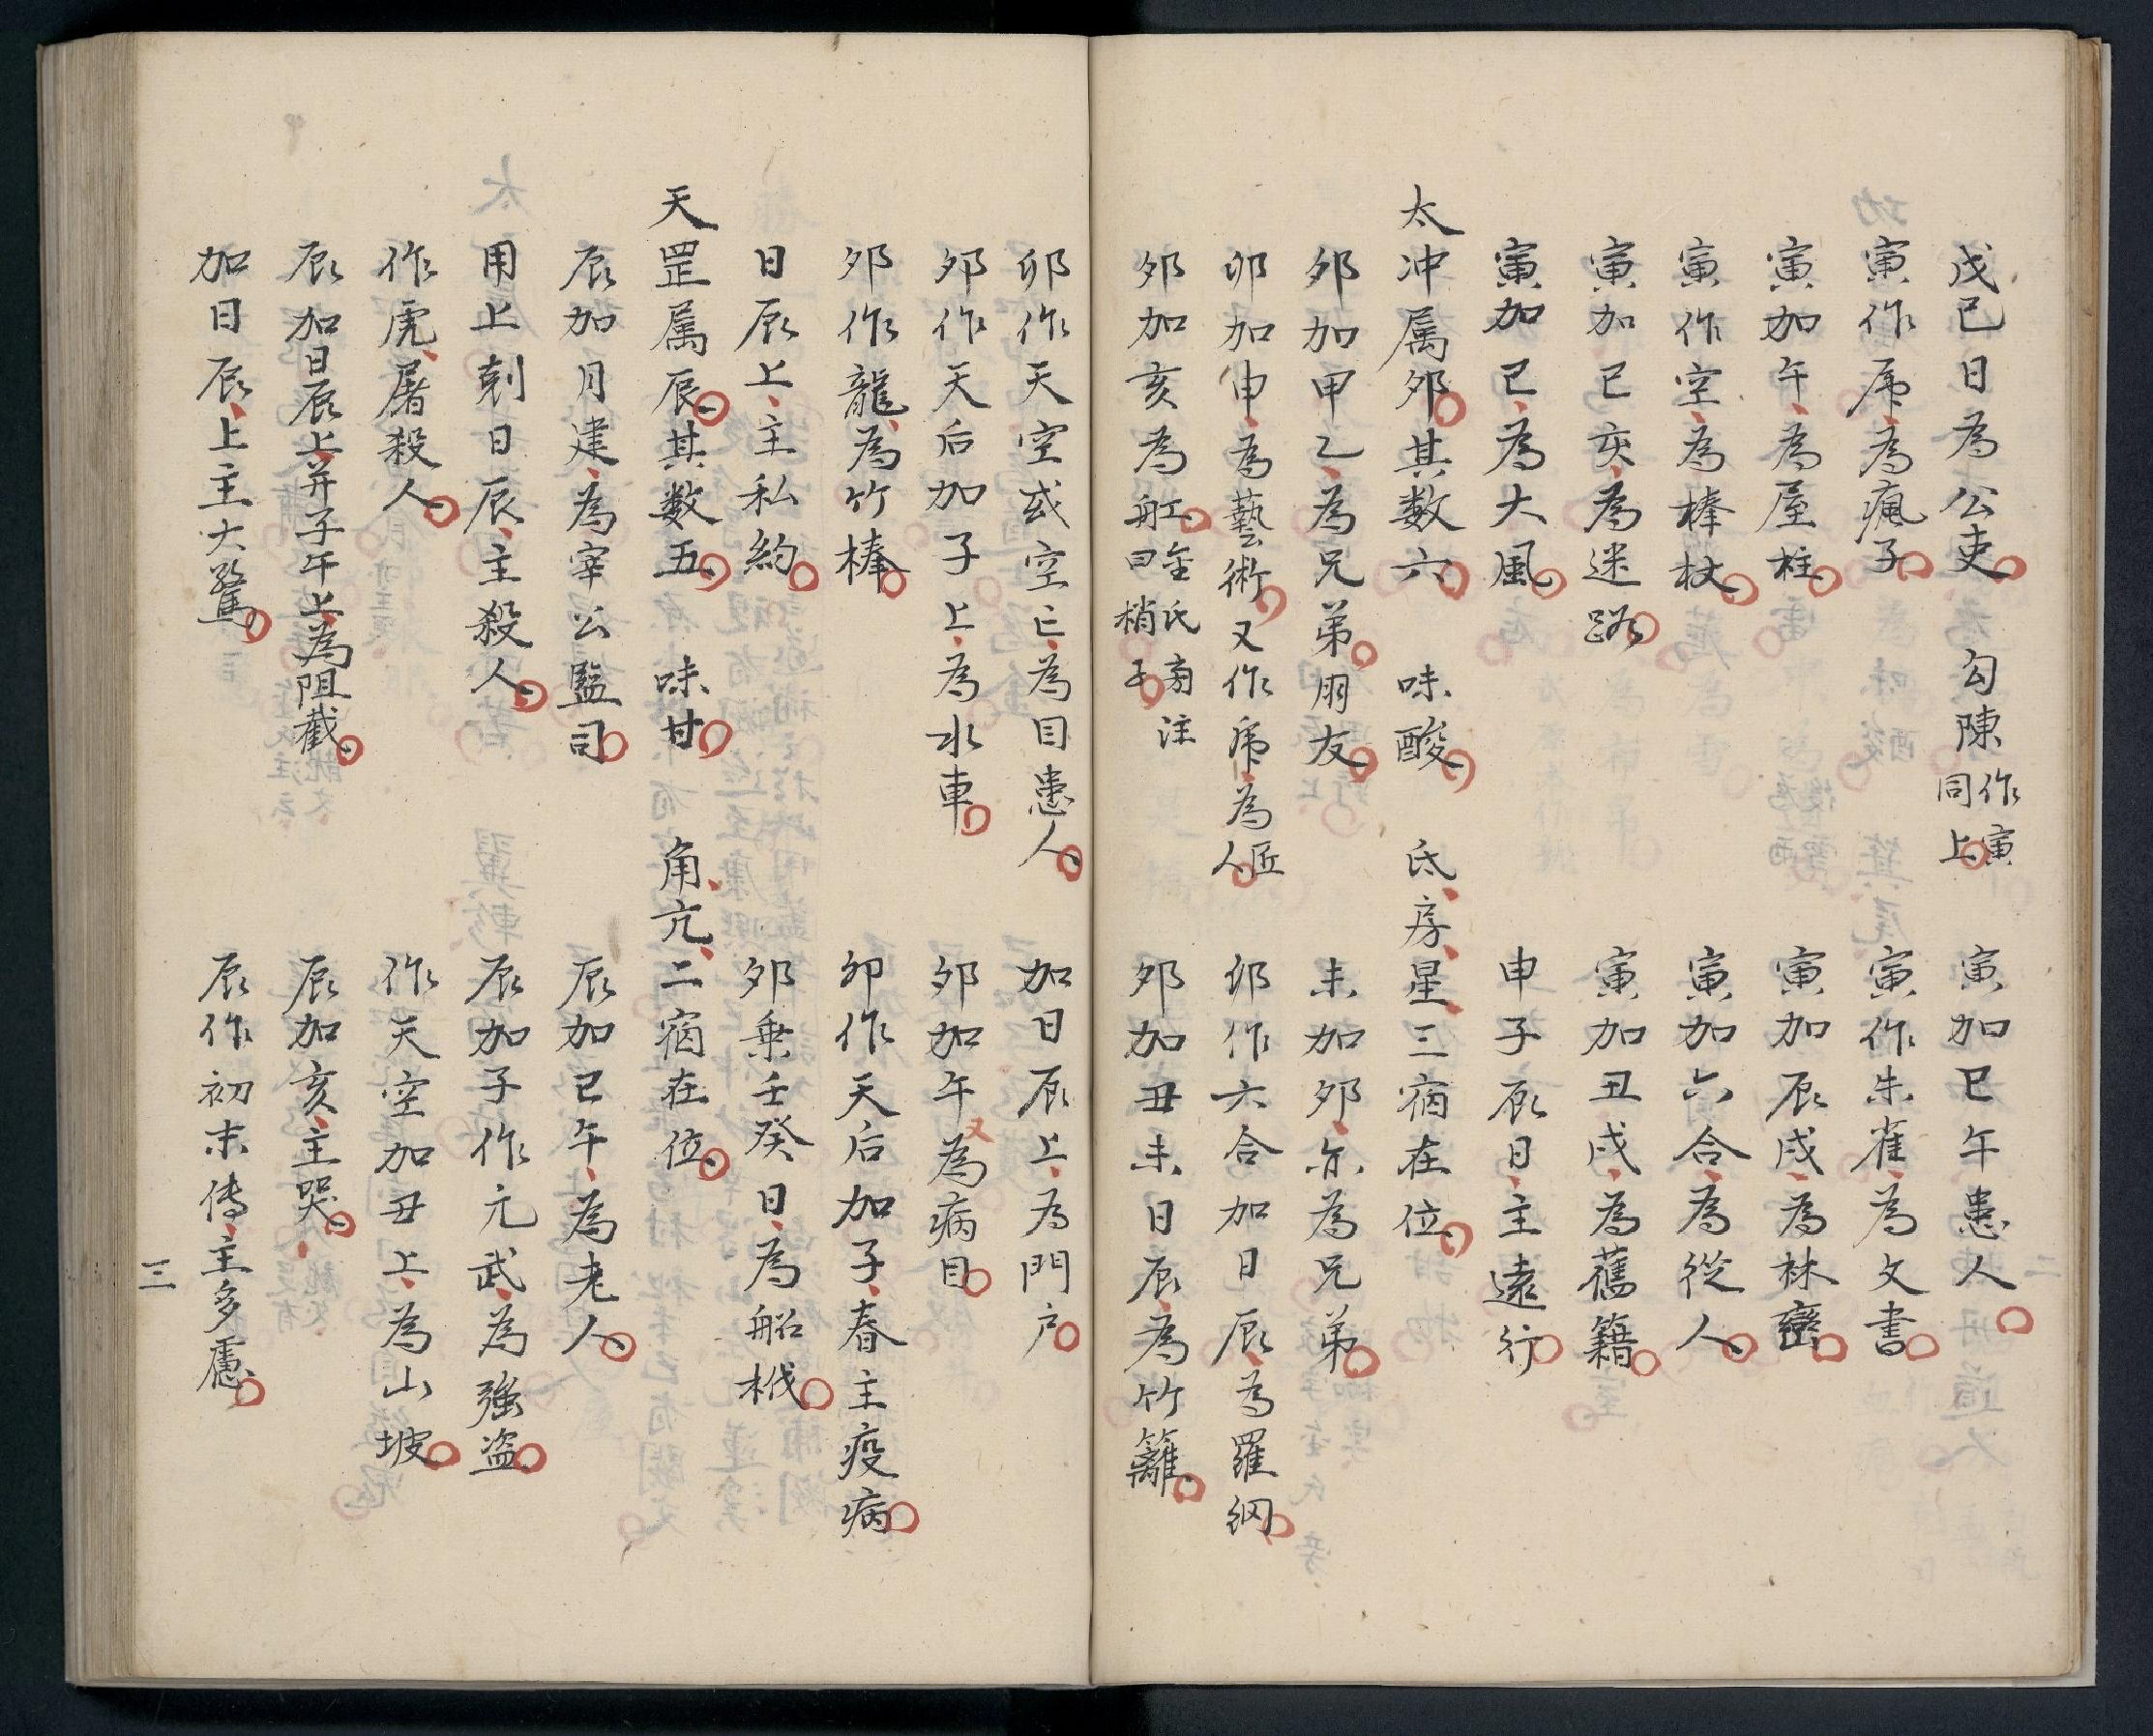 戊己日為公吏　勾陳作寅同上　寅加巳午患人
寅作虎為瘋子　寅作朱雀為文書
寅加午為屋柱　寅加辰戌為林巒
寅作空為棒杖　寅加六合為從人
寅加巳亥為迷路　寅加丑戌為舊籍
寅加巳為大風　申子辰日主遠行
太冲属夘其数六　味酸　氐房星三宿在位
夘加甲乙為兄弟朋友　未加夘亦為兄弟
卯加申為藝術又作虎為匠人　卯作六合加日辰為羅網
夘加亥為舡金氏齋注曰梢子　夘加丑未日辰為竹籬
卯作天空或空亡為目患人　加日辰上為門户
夘作天后加子上為水車　夘加午又為病目
夘作龍為竹棒　卯作天后加子春主疫病
日辰上主私約　夘乗壬癸日為船栰
天罡属辰其数五　味甘　角亢二宿在位
辰加月建為宰公監司　辰加巳午為老人
用上剋日辰主殺人　辰加子作元武為強盗
作虎屠殺人　作天空加丑上為山坡
辰加日辰上并子午上為阻截　辰加亥主哭
加日辰上主大驚　辰作初末傳主多慮
三